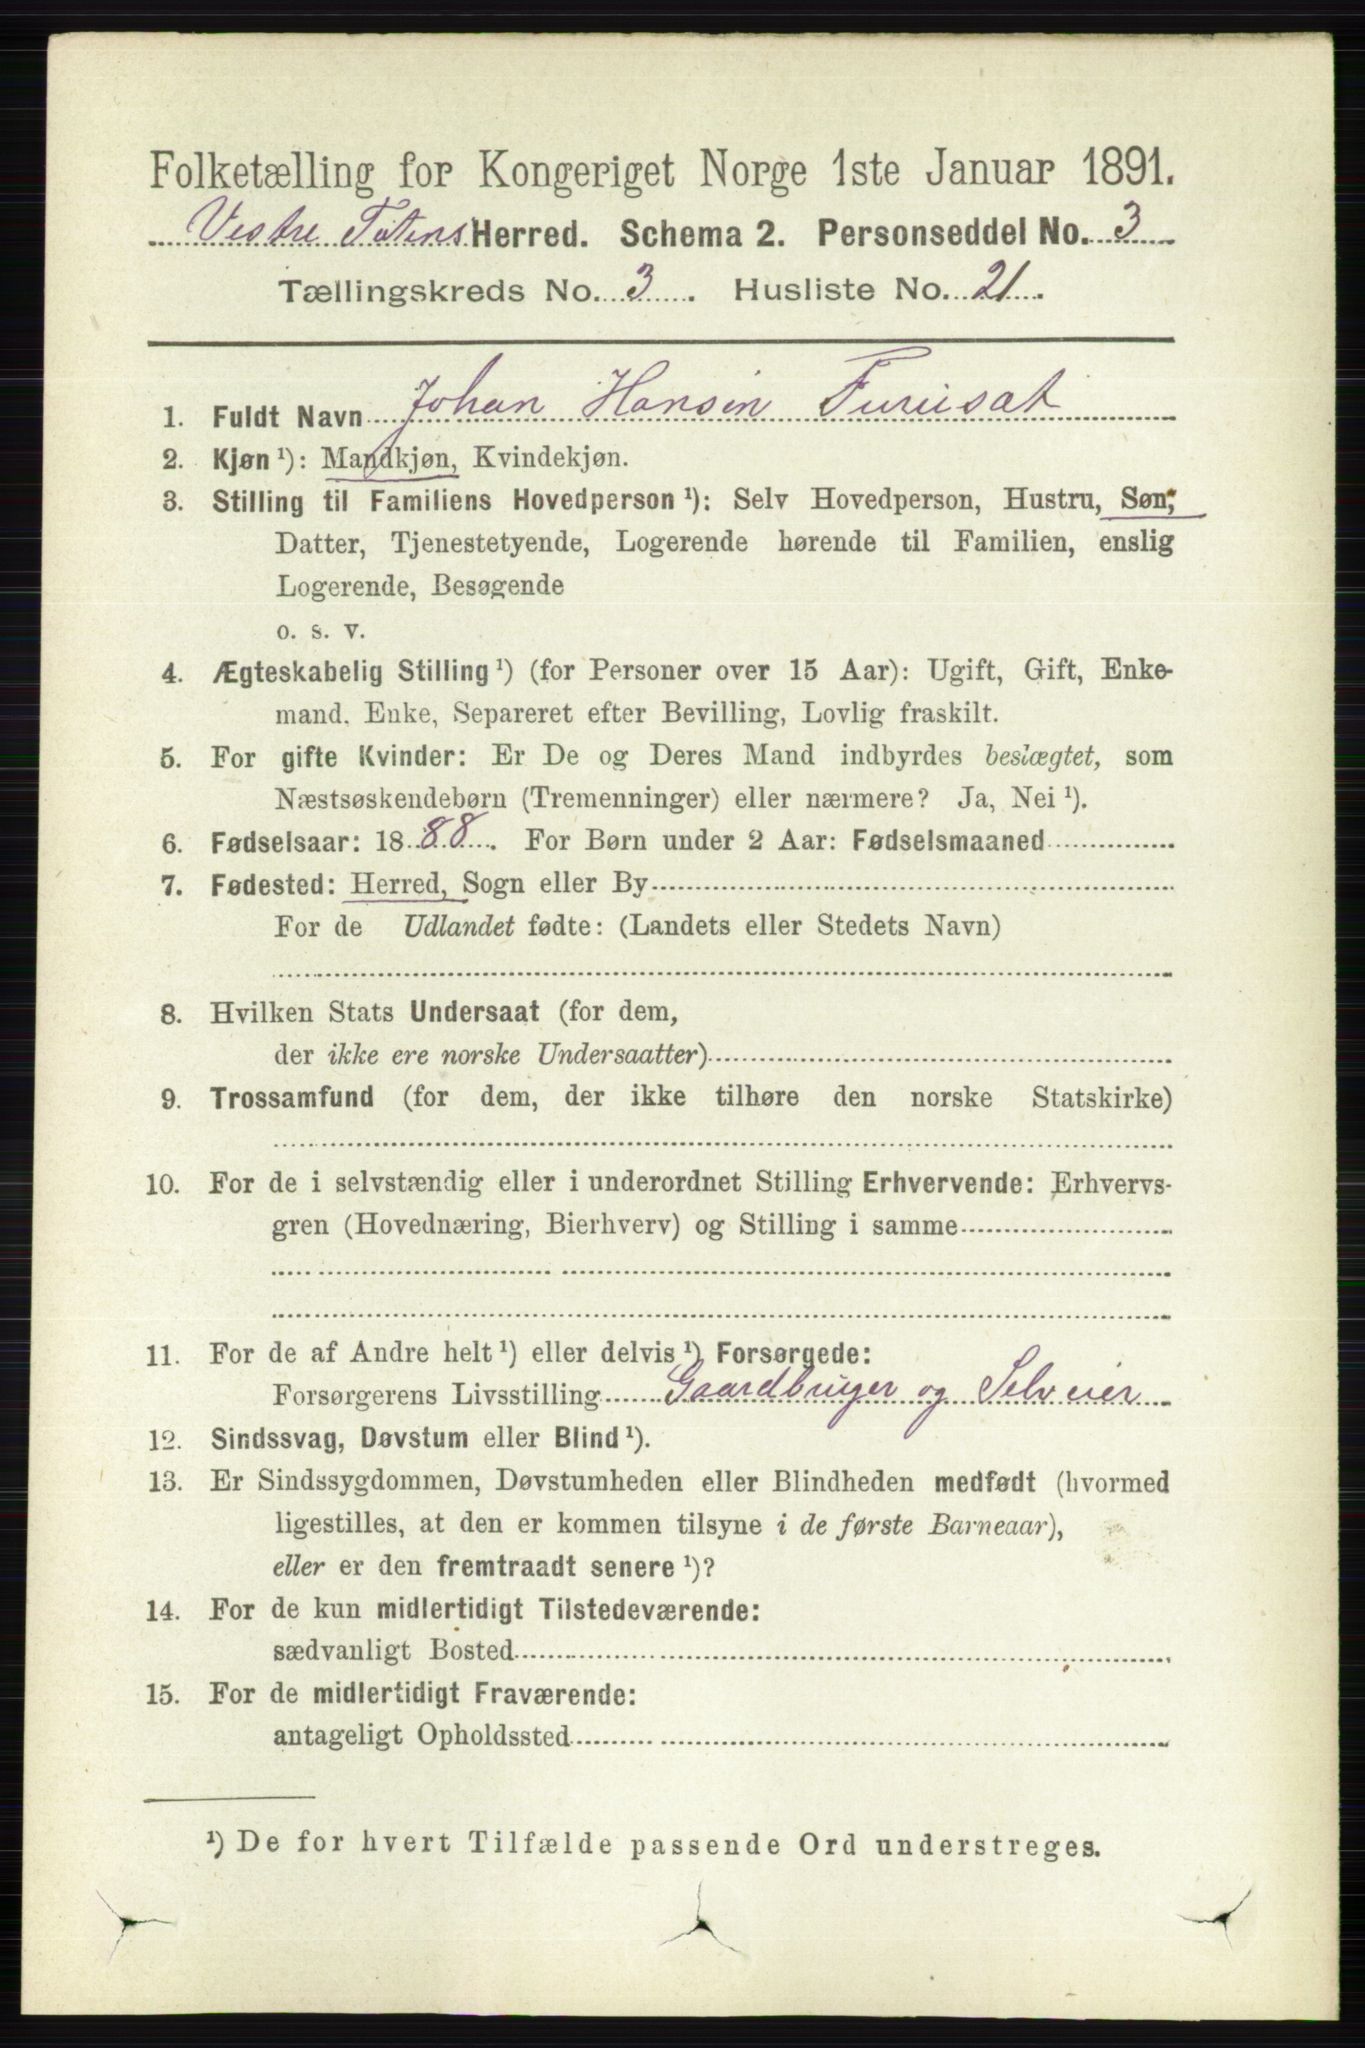 Folketælling for Kongeriget Norge 1ste Januar 1891.
Vestre Totens Herred. Schema 2. Personseddel No. 3
Tællingskreds No. 3. Husliste No. 21.
1. Fuldt Navn Johan Hansen Furusat
2. Kjøn ¹): Mandkjøn, Kvindekjøn.
3. Stilling til Familiens Hovedperson ¹): Selv Hovedperson, Hustru, Søn,
Datter, Tjenestetyende, Logerende hørende til Familien, enslig
Logerende, Besøgende
o. s. v.
4. Ægteskabelig Stilling ¹) (for Personer over 15 Aar): Ugift, Gift, Enke-
mand, Enke, Separeret efter Bevilling, Lovlig fraskilt.
5. For gifte Kvinder: Er De og Deres Mand indbyrdes beslægtet, som
Næstsøskendebørn (Tremenninger) eller nærmere? Ja, Nei ¹).
6. Fødselsaar: 1888. For Børn under 2 Aar: Fødselsmaaned
7. Fødested: Herred, Sogn eller By
For de Udlandet fødte: (Landets eller Stedets Navn)
8. Hvilken Stats Undersaat (for dem,
der ikke ere norske Undersaatter)
9. Trossamfund (for dem, der ikke tilhøre den norske Statskirke)
10. For de i selvstændig eller i underordnet Stilling Erhvervende: Erhvervs-
gren (Hovednæring, Bierhverv) og Stilling i samme
11. For de af Andre helt ¹) eller delvis ¹) Forsørgede:
Forsørgerens Livsstilling Gaardbruger og Selveier
12. Sindssvag, Døvstum eller Blind ¹).
13. Er Sindssygdommen, Døvstumheden eller Blindheden medfødt (hvormed
ligestilles, at den er kommen tilsyne i de første Barneaar),
eller er den fremtraadt senere ¹)?
14. For de kun midlertidigt Tilstedeværende:
sædvanligt Bosted
15. For de midlertidigt Fraværende:
antageligt Opholdssted
¹) De for hvert Tilfælde passende Ord understreges.